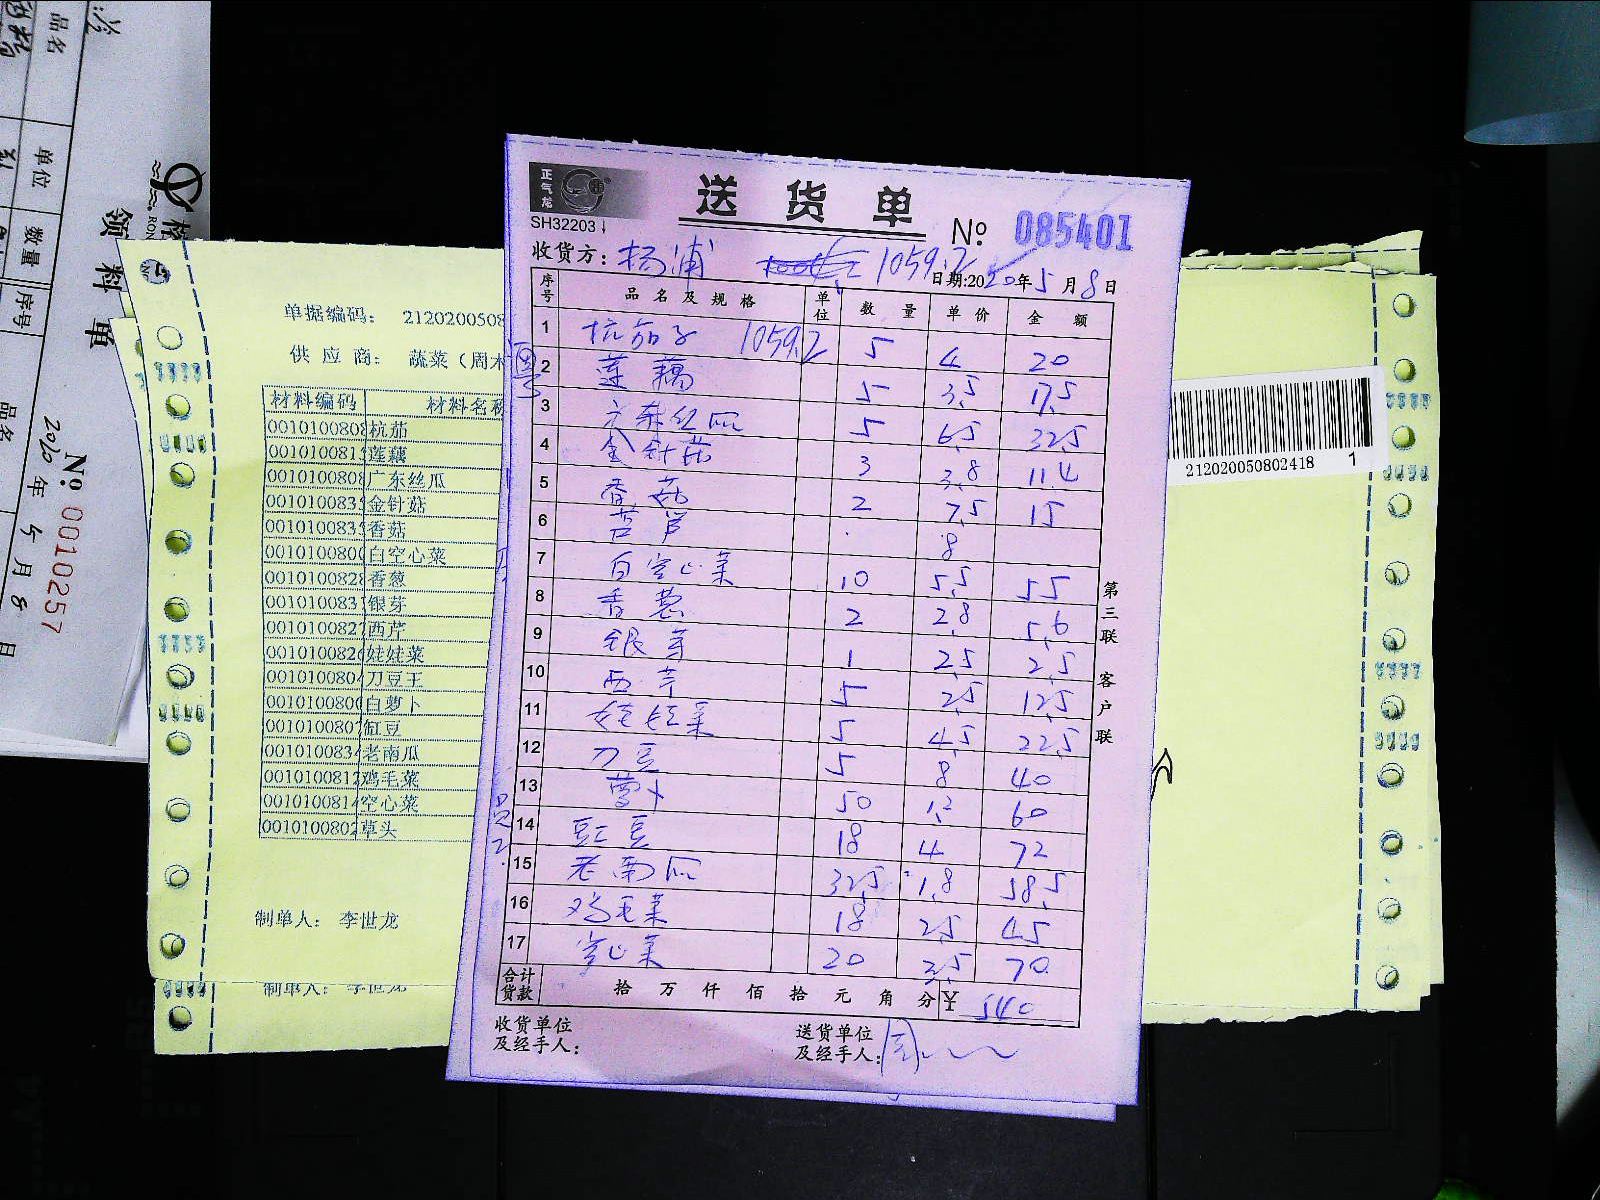 正气龙
送货单
SH32203
No: 085401
收货方: 杨浦 1059.2
日期:2020年5月8日
序号 品名及规格 单位 数量 单价 金额
1 杭茄子 1059.2 5 4 20
2 莲藕 5 3.5 17.5
3 广东丝瓜 5 6.5 32.5
4 金针菇 3 3.8 11.4
5 香菇 2 7.5 15
6 茑笋 8
7 白空心菜 10 5.5 55
8 香葱 2 2.8 5.6
9 银芽 1 2.5 2.5
10 西芹 5 2.5 12.5
11 娃娃菜 5 4.5 22.5
12 刀豆 5 8 40
13 萝卜 50 1.2 60
14 豇豆 18 4 72
15 老南瓜 32.5 1.8 58.5
16 鸡毛菜 18 2.5 45
17 空心菜 20 3.5 70
合计货款 拾万仟佰拾元角分 ¥ 540
收货单位及经手人:
送货单位及经手人:
第三联 客户联
单据编码: 2120200508
供应商: 蔬菜（周末
材料编码 材料名称
0010100808 杭茄
001010081 莲藕
0010100808 广东丝瓜
001010083 金针菇
001010083 香菇
0010100800 白空心菜
0010100828 香葱
001010083 银芽
001010082 西芹
0010100820 娃娃菜
001010080 刀豆王
0010100800 白萝卜
001010080 缸豆
001010083 老南瓜
001010081 鸡毛菜
001010081 空心菜
001010080 草头
制单人: 李世龙
制单人: 李世龙
212020050802418 1
领料单
No. 0010257
2020年5月8日
品名 单位 数量 序号
品名